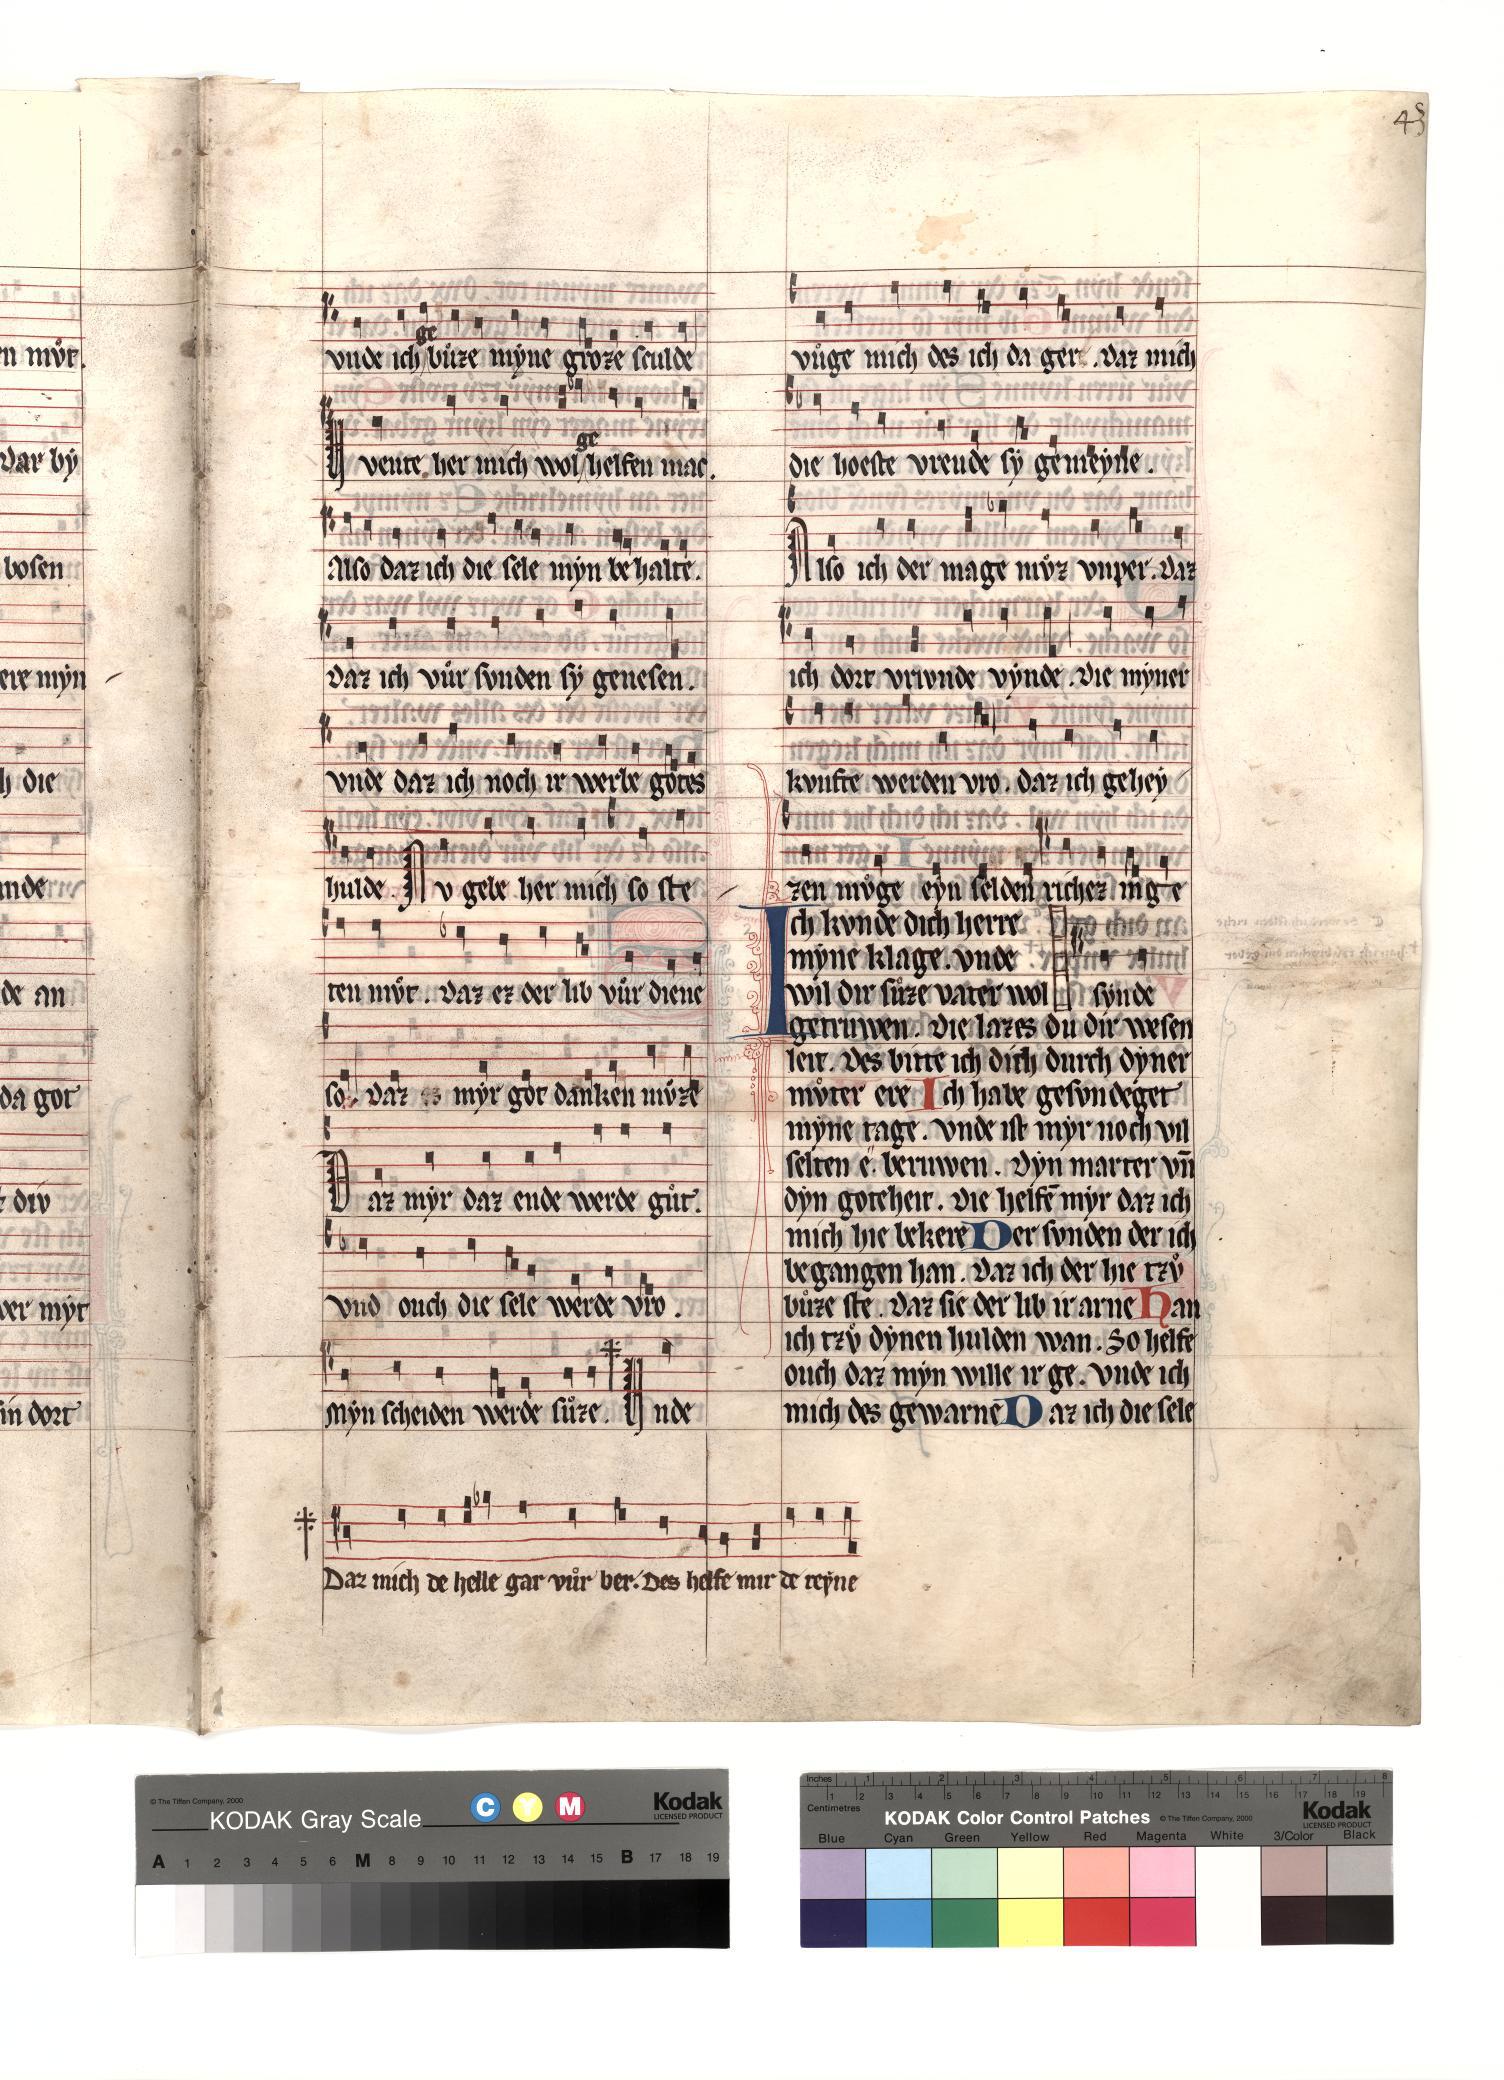 43
en mv̊r.
Dar bẏ
bosen
ere mẏn
h die
nde
de an
da got
div
ver mẏt
in dort
vnde ich bůze mẏne groze sculde
ge
vente her mich wol helfen mac.
ge
Also daz ich die sele mẏn behalte.
Daz ich vůr svnden sẏ genesen.
vnde daz ich noch ir werbe gotes
hulde. Nv gebe her mich so ste
ten mv̊t. Daz ez der lib vůr diene
so. Daz myr got danken mv̊ze
Daz mẏr daz ende werde gůt.
vnd ouch die sele werde vro.
Mẏn scheiden werde sůze. ‡ Vnde
‡
Daz mich de helle gar vůr ber. Des helfe mir de reẏne
vůge mich des ich da ger. Daz mich
die hoeste vreude sẏ gemeẏne.
Also ich der mage mv̊z vnper. Daz
ich dort vrivnde vẏnde. Die mẏner
kvnfte werden vro. Daz ich geheẏ
zen mv̊ge eẏn selden richez ingesẏnde
Ich kvnde dich herre
mẏne klage. vnde
wil dir sůze vater wol
getruwen. Die lazes du dir wesen
leit. Des bitte ich dich durch dẏner
mv̊ter ere Ich habe gesvndeget
mẏne tage. vnde ist mẏr noch vil
selten e beruwen. Dẏn marter vn̄
dẏn goteheit. Die helfē mẏr daz ich
mich hie bekere Der svnden der ich
begangen han. Daz ich der hie tzv̊
bůze ste. Daz sie der lib ir arne Han
ich tzv̊ dẏnen hulden wan. So helfe
ouch daz mẏn wille ir ge. vnde ich
mich des gewarne Daz ich die sele
© The Tiffen Company, 2000
KODAK Gray Scale
C Y M
Kodak
LICENSED PRODUCT
A 1 2 3 4 5 6 M 8 9 10 11 12 13 14 15 B 17 18 19
Inches 1 2 3 4 5 6 7 8
Centimetres 1 2 3 4 5 6 7 8 9 10 11 12 13 14 15 16 17 18 19
KODAK Color Control Patches © The Tiffen Company, 2000
Kodak
LICENSED PRODUCT
Blue Cyan Green Yellow Red Magenta White 3/Color Black